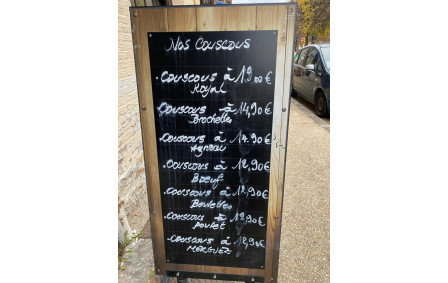 Nos Couscous
Couscous à 19.00€
Royal
Couscous à 14,90€
Brochettes
Couscous à 14.90€
Agneau
Couscous à 12,90€
Bœuf
Couscous à 12,90€
Boulettes
Couscous à 12,90€
Poulet
Couscous à 12,90€
MERGUEZ